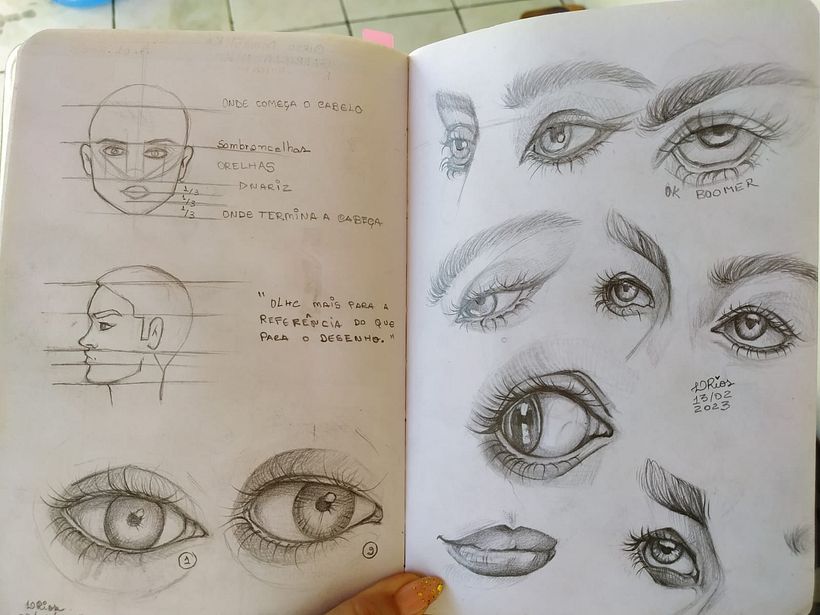 ONDE COMEÇA O CABELO
Sombrancelhas
ORELHAS
DNARIZ
1/3
1/3
1/3
ONDE TERMINA A CABEÇA
"OLHE MAIS PARA A
REFERÊNCIA DO QUE
PARA O DESENHO."
1
2
LDRios
OK BOOMER
LDRios
13/02
2023